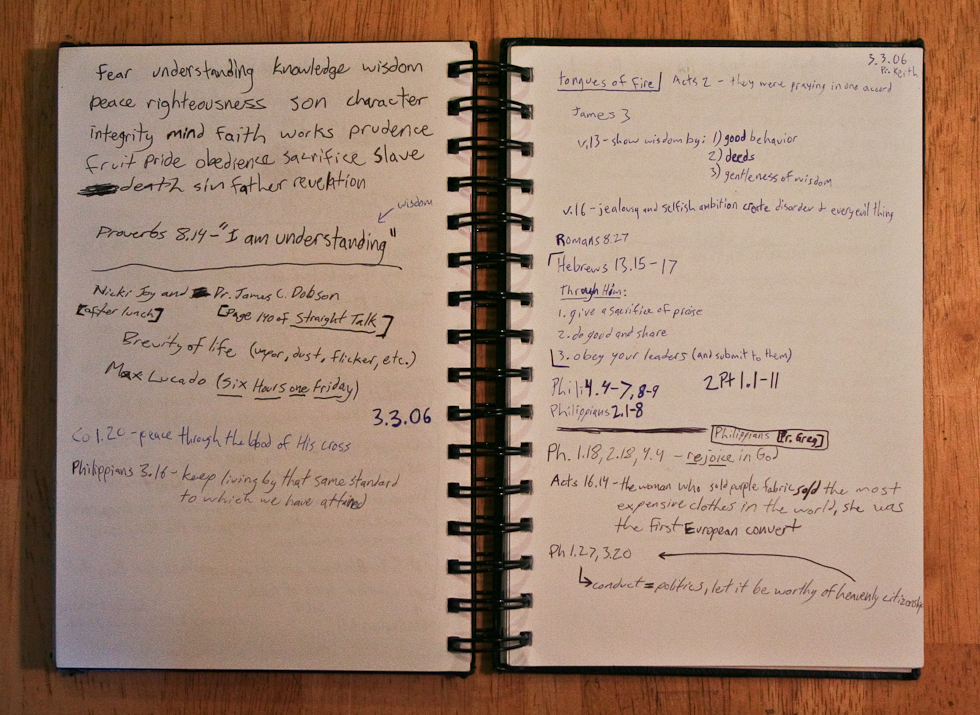 Fear understanding knowledge wisdom
peace righteousness son character
integrity mind faith works prudence
fruit pride obedience sacrifice slave
death sin father revelation
wisdom
Proverbs 8.14-"I am understanding"
Nicki Joy and Dr. James C. Dobson
[after lunch] [Page 140 of Straight Talk]
Brevity of life (vapor, dust, flicker, etc.)
Max Lucado (Six Hours one Friday)
3.3.06
Co 1.20-peace through the blood of His cross
Philippians 3.16-keep living by that same standard
to which we have attained
3.3.06
Pr. Keith
tongues of fire Acts 2 - they were praying in one accord
James 3
v.13-show wisdom by: 1) good behavior
2) deeds
3) gentleness of wisdom
v.16-jealousy and selfish ambition create disorder + every evil thing
Romans 8.27
Hebrews 13.15-17
Through Him:
1. give a sacrifice of praise
2. do good and share
3. obey your leaders (and submit to them)
Phili 4.4-7, 8-9 2Pt 1.1-11
Philippians 2.1-8
Philippians [Pr. Greg]
Ph. 1.18, 2.18, 4.4 - rejoice in God
Acts 16.14-the woman who sold purple fabric sold the most
expensive clothes in the world, she was
the first European convert
Ph 1.27, 3.20
conduct = politics, let it be worthy of heavenly citizenship